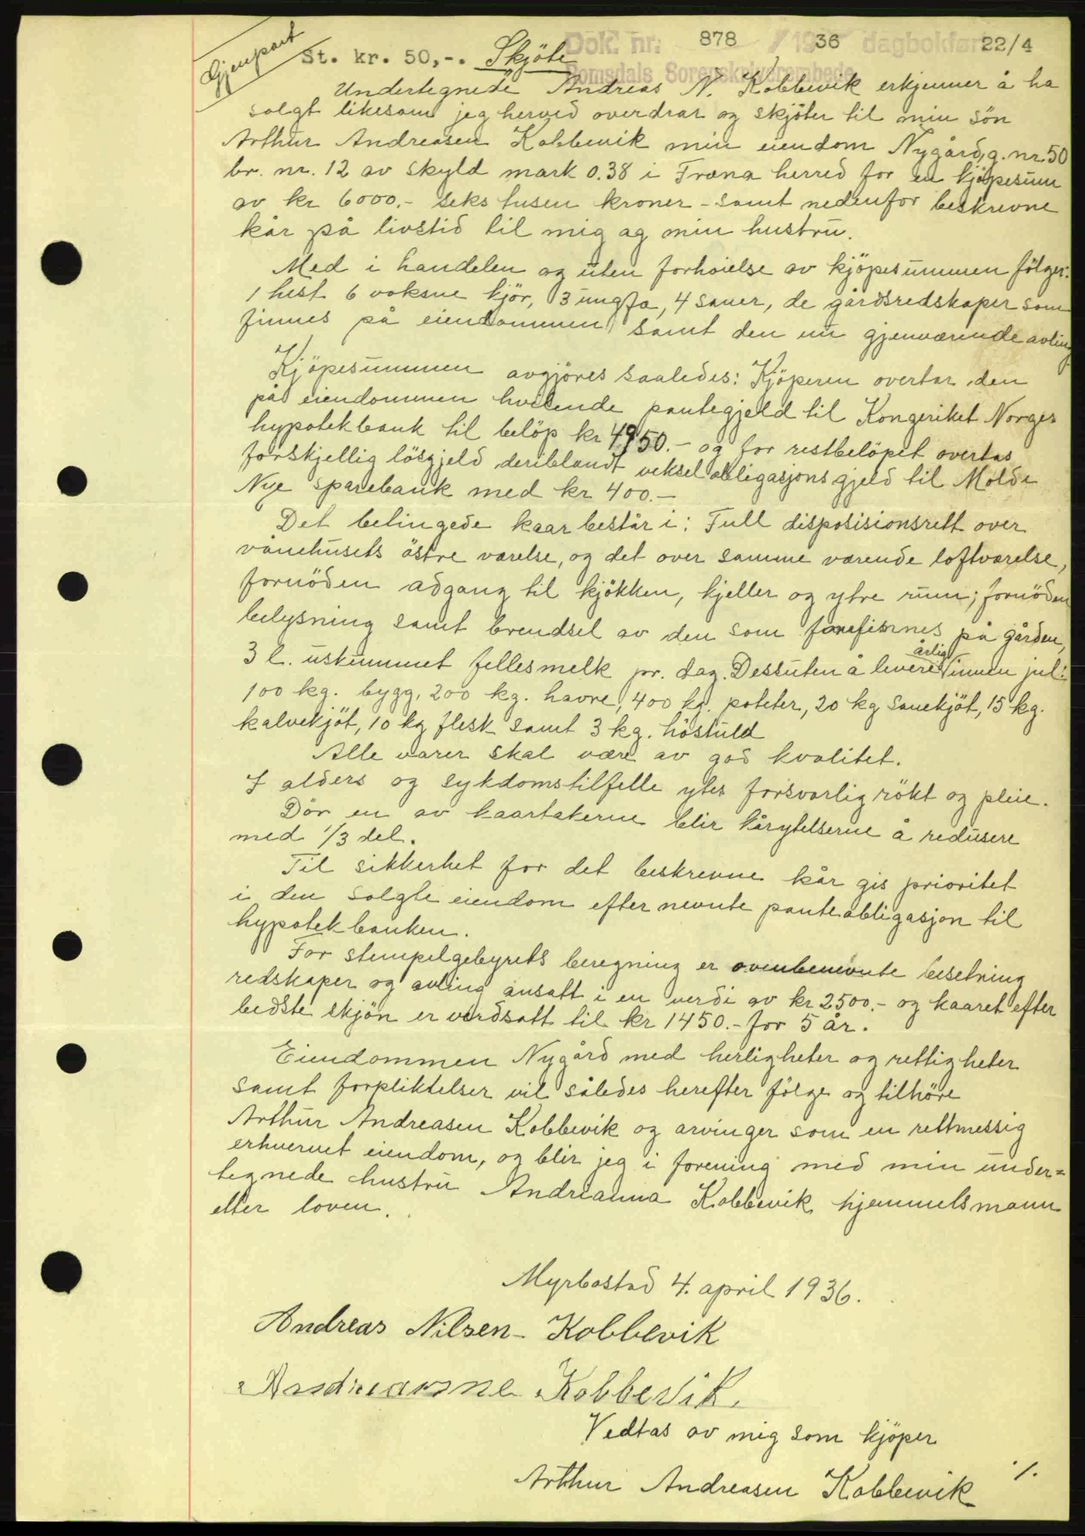 Gjenpart
St. kr. 50,-. Skjöte
Dok. nr. 878 / 1936 dagbokført 22/4
Romsdals Sorenskriverembede
Undertegnede Andreas N. Kobbevik erkjenner å ha
solgt likesom jeg herved overdrar og skjöter til min sön
Arthur Andreasen Kobbevik min eiendom Nygård, g. nr. 50
br. nr. 12 av skyld mark 0.38 i Fræna herred for en kjöpesum
av kr 6000.- seks tusen kroner - samt nedenfor beskrevne
kår på livstid til mig og min hustru.
Med i handelen og uten forhöielse av kjöpesummen fölger:
1 hest 6 voksne kjör, 3 ungfæ, 4 sauer, de gårdsredskaper som
finnes på eiendommen samt den nu gjenværende avling
Kjöpesummen avgjöres saaledes: Kjöperen overtar den
på eiendommen hvilende pantegjeld til Kongeriket Norges
hypotekbank til belöp kr 4950.- og for restbelöpet overtas
forskjellig lösgjeld deriblandt veksel obligasjonsgjeld til Molde
Nye Sparebank med kr 400.-
Det betingede kaar består i: Full disposisionsrett over
vånehusets östre værelse, og det over samme værende loftværelse,
fornöden adgang til kjökken, kjeller og ytre rum; fornöden
belysning samt brendsel av den som forefinnes på gården,
3 l. uskummet fellesmelk pr. dag. Dessuten å levere årlig innen jul:
100 kg. bygg, 200 kg. havre, 400 kg. poteter, 20 kg sauekjöt, 15 kg.
kalvekjöt, 10 kg flesk samt 3 kg. höstuld
Alle varer skal være av god kvalitet.
I alders og sykdomstilfelle ytes forsvarlig rökt og pleie.
Dör en av kaartakerne blir kårytelserne å redusere
med 1/3 del.
Til sikkerhet for det beskrevne kår gis prioritet
i den solgte eiendom efter nevnte panteobligasjon til
hypotekbanken.
For stempelgebyrets beregning er ovenbenevnte besetning
redskaper og avling ansatt i en verdi av kr 2500.- og kaaret efter
bedste skjön er verdsatt til kr 1450.- for 5 år.
Eiendommen Nygård med herligheter og rettigheter
samt forpliktelser vil således herefter fölge og tilhöre
Arthur Andreasen Kobbevik og arvinger som en rettmessig
erhvervet eiendom, og blir jeg i forening med min under=
tegnede hustru Andreanna Kobbevik hjemmelsmann
efter loven.
Myrbostad 4. april 1936.
Andreas Nilsen- Kobbevik
Andreanne Kobbevik.
Vedtas av mig som kjöper
Arthur Andreasen Kobbevik ./.